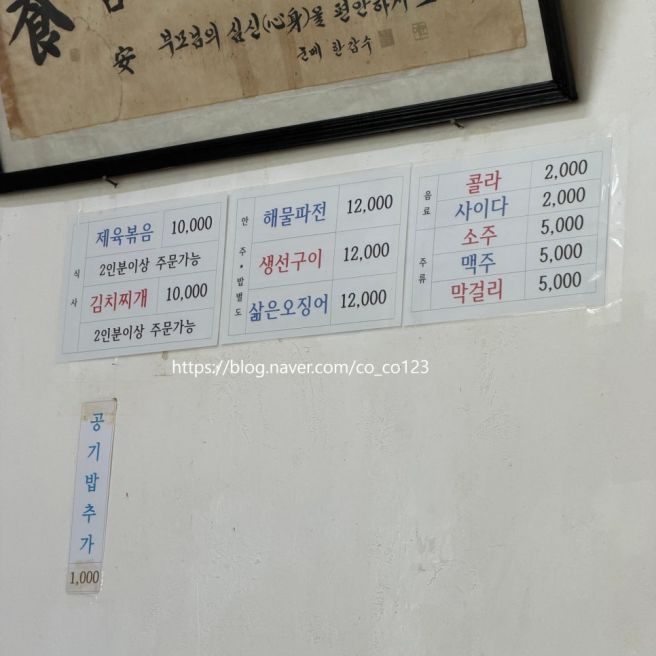 食
安
부모님의 심신(心身)을 편안하게
근메 한갑수
식사
제육볶음 10,000
2인분이상 주문가능
김치찌개 10,000
2인분이상 주문가능
안주*밥별도
해물파전 12,000
생선구이 12,000
삶은오징어 12,000
음료
콜라 2,000
사이다 2,000
주류
소주 5,000
맥주 5,000
막걸리 5,000
https://blog.naver.com/co_co123
공기밥추가
1,000